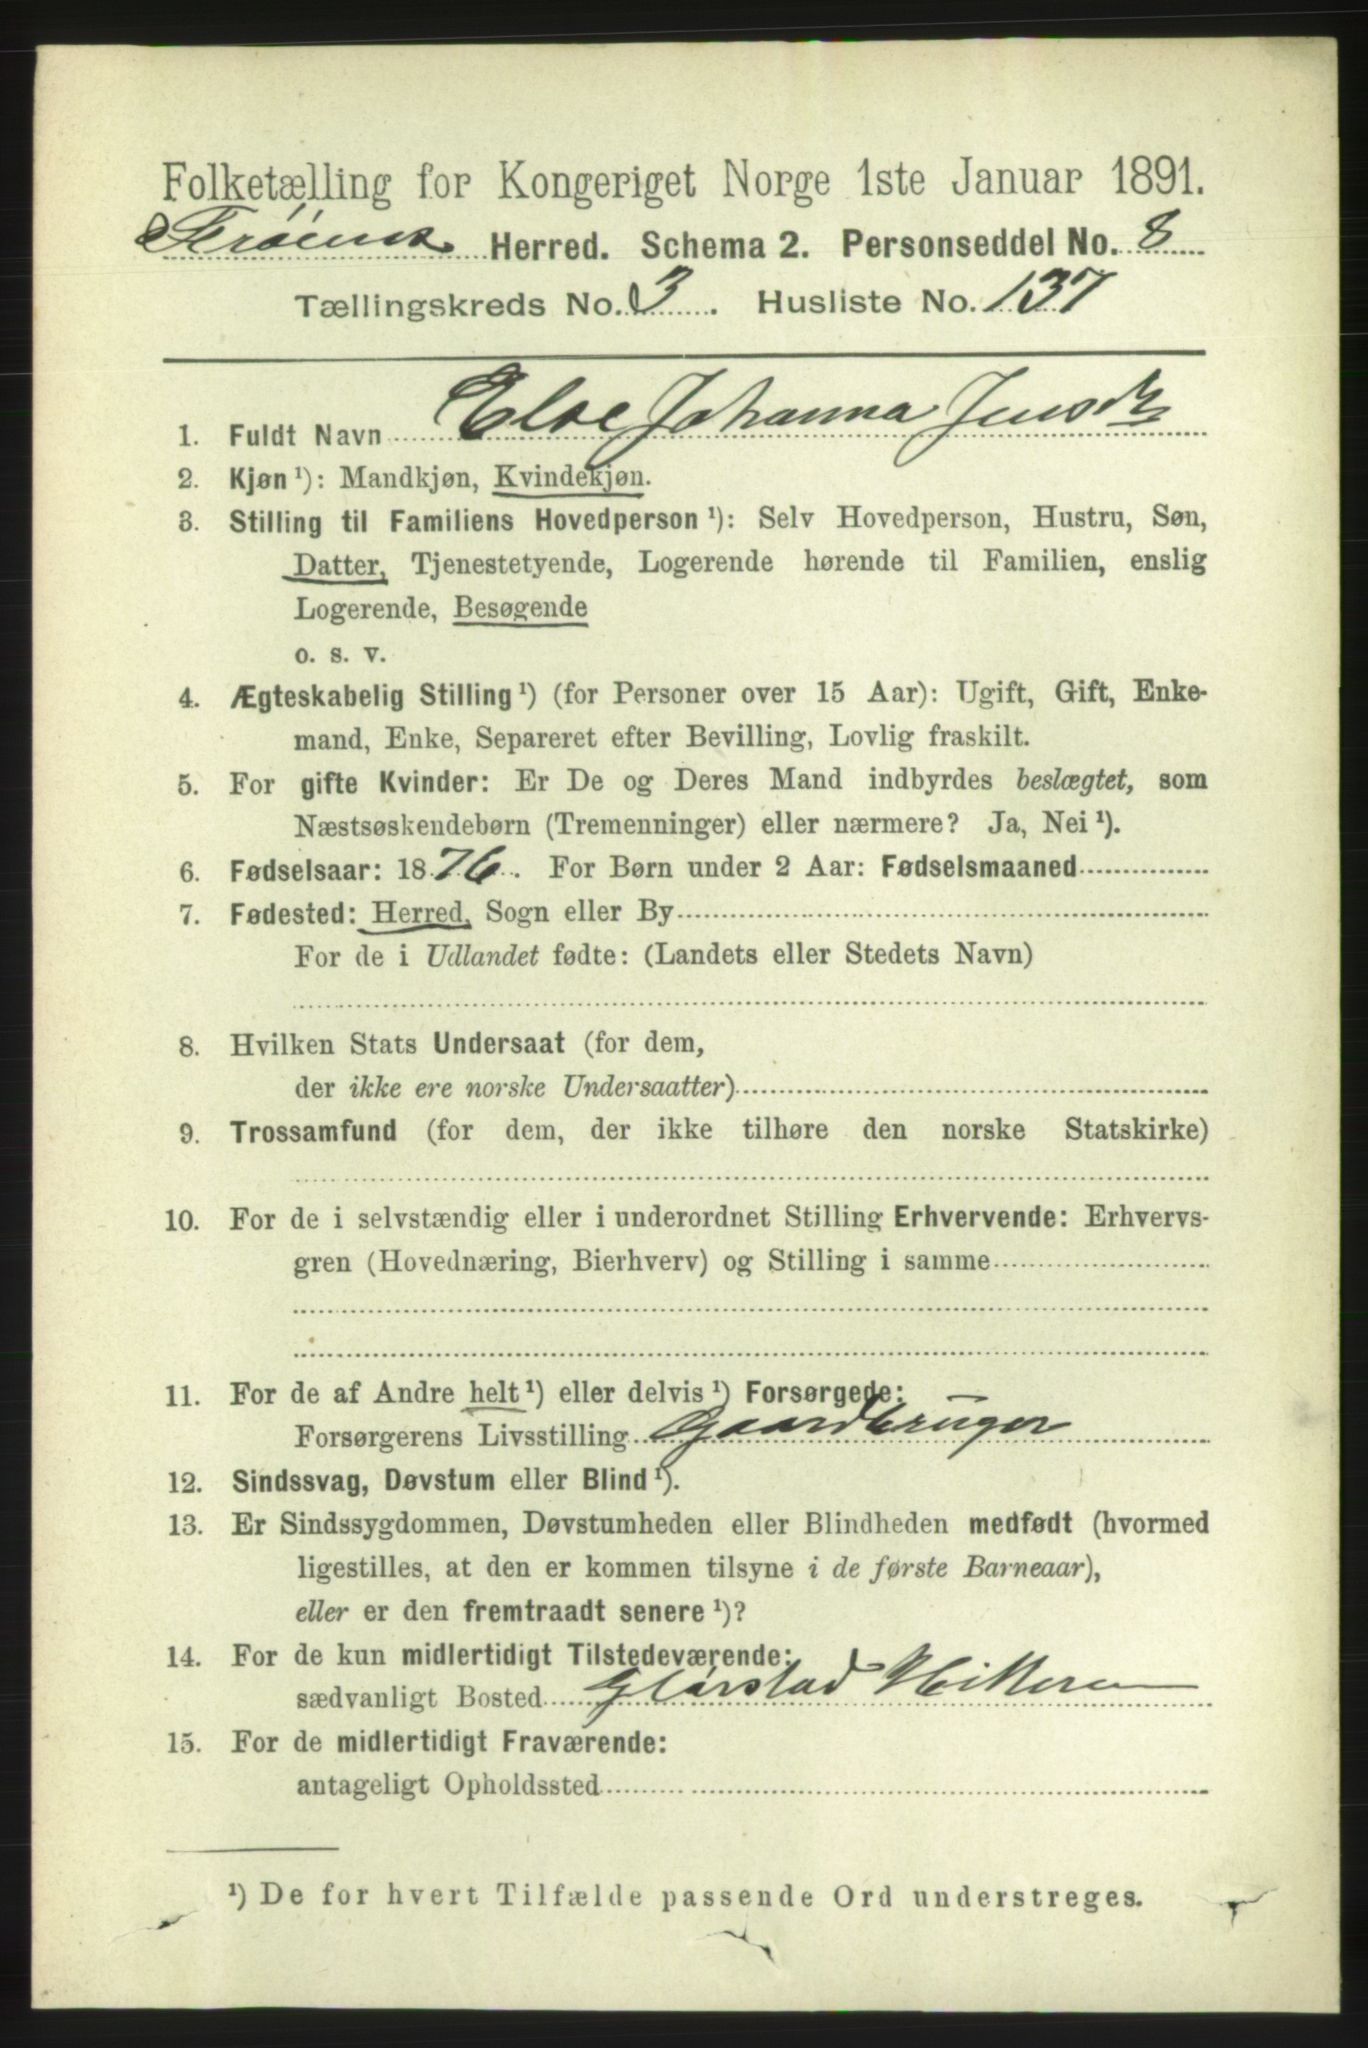 Folketælling for Kongeriget Norge 1ste Januar 1891.
Herred. Schema 2. Personseddel No. 8
Tællingskreds No. 3. Husliste No. 137
1. Fuldt Navn Else Johanna Jensdtr
2. Kjøn ¹): Mandkjøn, Kvindekjøn.
3. Stilling til Familiens Hovedperson ¹): Selv Hovedperson, Hustru, Søn,
Datter, Tjenestetyende, Logerende hørende til Familien, enslig
Logerende, Besøgende
o. s. v.
4. Ægteskabelig Stilling ¹) (for Personer over 15 Aar): Ugift, Gift, Enke-
mand, Enke, Separeret efter Bevilling, Lovlig fraskilt.
5. For gifte Kvinder: Er De og Deres Mand indbyrdes beslægtet, som
Næstsøskendebørn (Tremenninger) eller nærmere? Ja, Nei ¹).
6. Fødselsaar: 1876. For Børn under 2 Aar: Fødselsmaaned
7. Fødested: Herred, Sogn eller By
For de i Udlandet fødte: (Landets eller Stedets Navn)
8. Hvilken Stats Undersaat (for dem,
der ikke ere norske Undersaatter)
9. Trossamfund (for dem, der ikke tilhøre den norske Statskirke)
10. For de i selvstændig eller i underordnet Stilling Erhvervende: Erhvervs-
gren (Hovednæring, Bierhverv) og Stilling i samme
11. For de af Andre helt ¹) eller delvis ¹) Forsørgede:
Forsørgerens Livsstilling Gaardbruger
12. Sindssvag, Døvstum eller Blind ¹).
13. Er Sindssygdommen, Døvstumheden eller Blindheden medfødt (hvormed
ligestilles, at den er kommen tilsyne i de første Barneaar),
eller er den fremtraadt senere ¹)?
14. For de kun midlertidigt Tilstedeværende:
sædvanligt Bosted Glørstad Hitteren
15. For de midlertidigt Fraværende:
antageligt Opholdssted
¹) De for hvert Tilfælde passende Ord understreges.